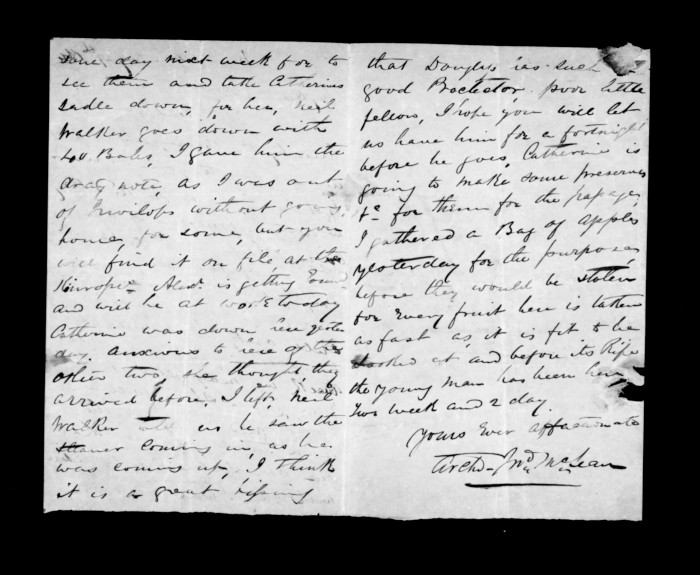 some day next week for to
see them and take Catherines
sadle down, for her, Neil
Walker goes down with
40 Bales, I gave him the
dray note, as I was out
of Invilops without going
home, for some, but you
will find it on file at the
Alexr is getting
and will be at work to day
Catherine was down here yester
day. anxious to here of the
other two, she thought they
arrived before, I left, Neil
Walker as he saw the
coming in, as he
was coming up, I think
it is a great blissing
that Douglas is such a
good Prolector poor little
fellow, I hope you will let
us have him for a fortnight
before he goes, Catherine is
going to make some preserves
&c for them for the passage,
I gathered a Bag of apples
yesterday for the purposes
before they would be stolen
for Every fruit here is taken
as fast as, it is fit to be
looked at and before its Ripe
the young man has been here
two week and 2 day.
yours Ever affactionate
Archd Jno McLean